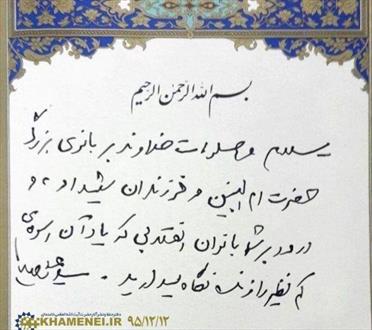 بسم الله الرحمن الرحیم
سلام و صلوات خداوند بر بانوی بزرگ
حضرت ام البنین و فرزندان شهید او، و
درود بر شما بانوان انقلابی که یاد آن اسوه‌ی
کم نظیر را زنده نگاه میدارید. سید علی خامنه‌ای
KHAMENEI.IR ۹۵/۱۲/۱۲